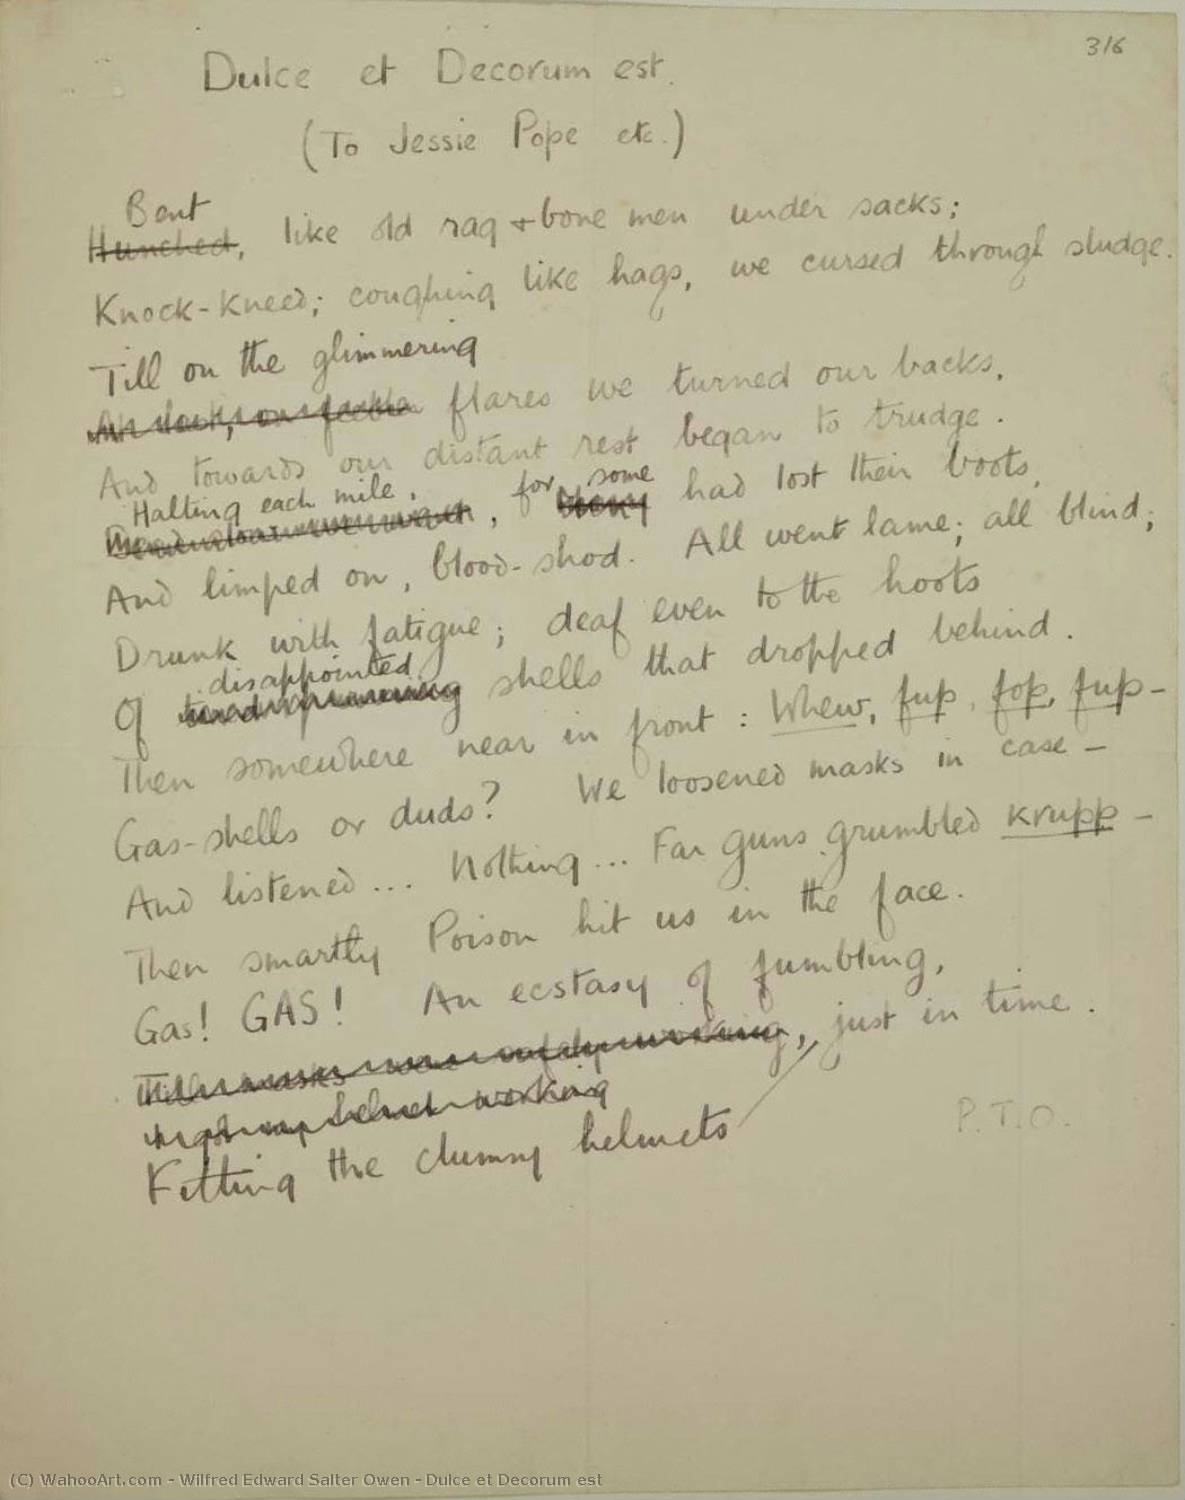 316
Dulce et Decorum est.
(To Jessie Pope etc.)
Bent
Hunched, like old rag + bone men under sacks;
Knock-kneed; coughing like hags, we cursed through sludge.
Till on the glimmering
flares we turned our backs,
And towards our distant rest began to trudge.
Halting each mile, for some
Many had lost their boots,
And limped on, blood-shod. All went lame; all blind;
Drunk with fatigue; deaf even to the hoots
disappointed
Of shells that dropped behind.
Then somewhere near in front: Whew, fup, fop, fup-
Gas-shells or duds? We loosened masks in case -
And listened... Nothing... Far guns grumbled Krupp -
Then smartly Poison hit us in the face.
Gas! GAS! An ecstasy of fumbling,
Till masks were safely working, just in time.
helmet working
Fitting the clumsy helmets
P.T.O.
(C) WahooArt.com - Wilfred Edward Salter Owen - Dulce et Decorum est